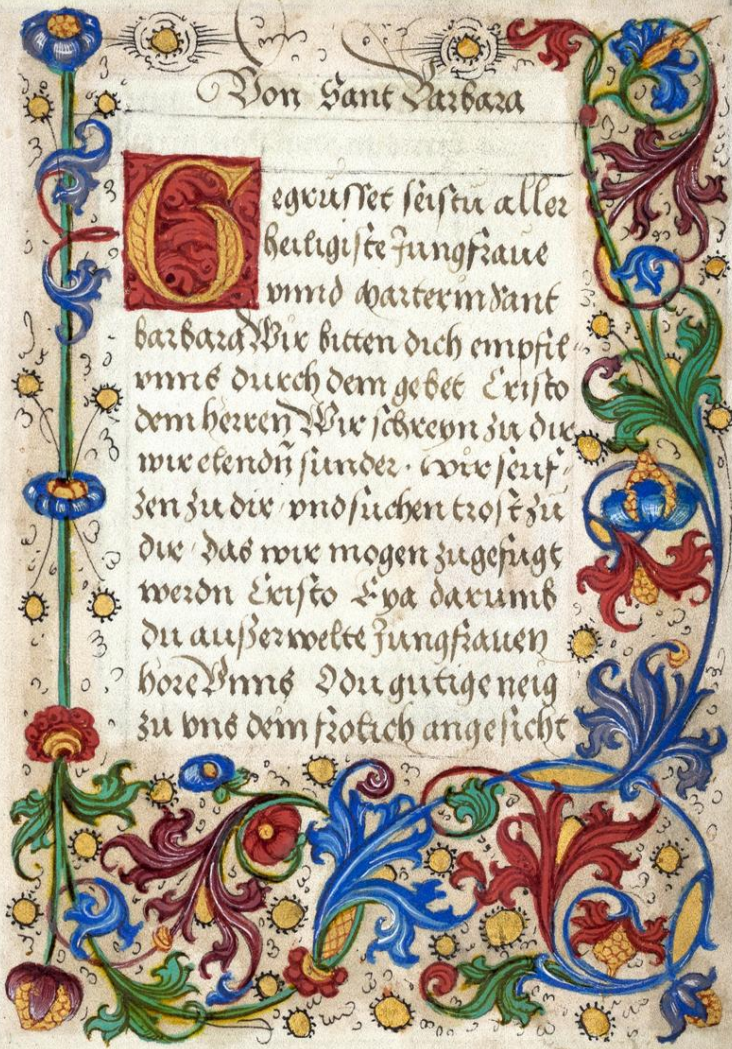 Von Sant Barbara
Gegrusset seistu aller
heiligiste Jungfraue
vnnd Marterin Sant
barbara Wir bitten dich empfil-
vnns durch dem gebet Cristo
dem herren Wir schreyn zu dir
wir elendn̄ sunder · wir seuf-
zen zu dir vnd suchen trost zu
dir das wir mogen zugefugt
werdn Cristo Eya darumb
du außerwelte Jungfrauen
hore Vnns O du gutige neig
zu vns dem frolich angesicht